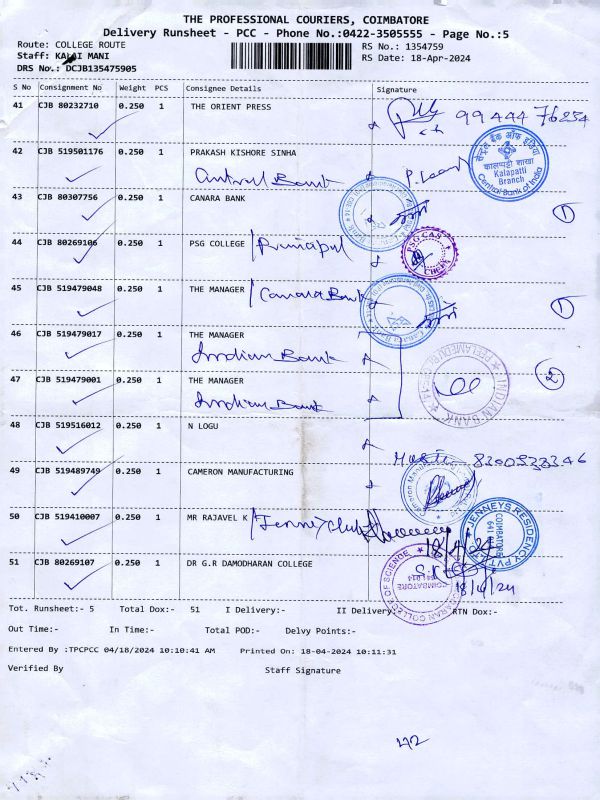 THE PROFESSIONAL COURIERS, COIMBATORE
Delivery Runsheet - PCC - Phone No.:0422-3505555 - Page No.:5
Route: COLLEGE ROUTE RS No.: 1354759
Staff: KALAI MANI RS Date: 18-Apr-2024
DRS No.: DCJB135475905
S No Consignment No Weight PCS Consignee Details Signature
41 CJB 80232710 0.250 1 THE ORIENT PRESS
42 CJB 519501176 0.250 1 PRAKASH KISHORE SINHA
Central Bank
सेन्ट्रल बैंक ऑफ इंडिया
Kalapatti
Branch
Central Bank of India
43 CJB 80307756 0.250 1 CANARA BANK
1
44 CJB 80269106 0.250 1 PSG COLLEGE / Principal
PSG CAS
45 CJB 519479048 0.250 1 THE MANAGER / Canara Bank
1
46 CJB 519479017 0.250 1 THE MANAGER
Indian Bank
47 CJB 519479001 0.250 1 THE MANAGER
Indian Bank
INDIAN BANK
2
48 CJB 519516012 0.250 1 N LOGU
49 CJB 519489749 0.250 1 CAMERON MANUFACTURING
50 CJB 519410007 0.250 1 MR RAJAVEL K / Jenney Club
JENNEYS RESIDENCY PVT.
COIMBATORE
18/4/24
51 CJB 80269107 0.250 1 DR G.R DAMODHARAN COLLEGE
COLLEGE OF SCIENCE
COIMBATORE
18/4/24
Tot. Runsheet:- 5 Total Dox:- 51 I Delivery:- II Delivery: RTN Dox:-
Out Time:- In Time:- Total POD:- Delvy Points:-
Entered By :TPCPCC 04/18/2024 10:10:41 AM Printed On: 18-04-2024 10:11:31
Verified By Staff Signature